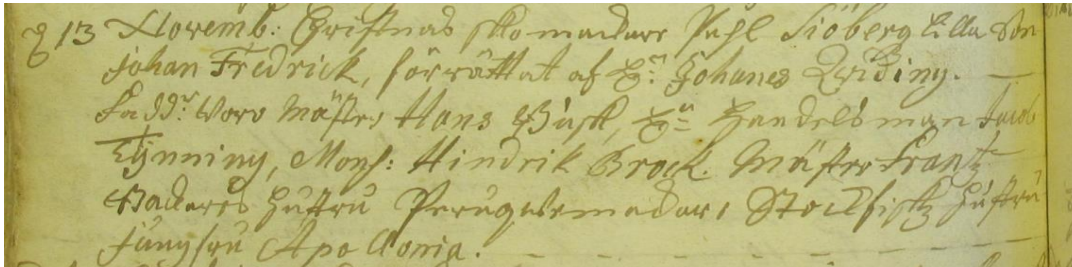 d 13 Novemb: Cristnas skomackare Pahl Siöberg lilla Son
Johan Fredrick, förrättat af Hr: Johanes Qviding.
Fadd:r Woro Mäster Hans Busk, Hr: Handelsman Jacob
Tynning, Mons: Hindrik Brock. Mäster Frantz
Backares hustru Peruqvemackare Stockfisk hustru
Jungfru Apollonia.